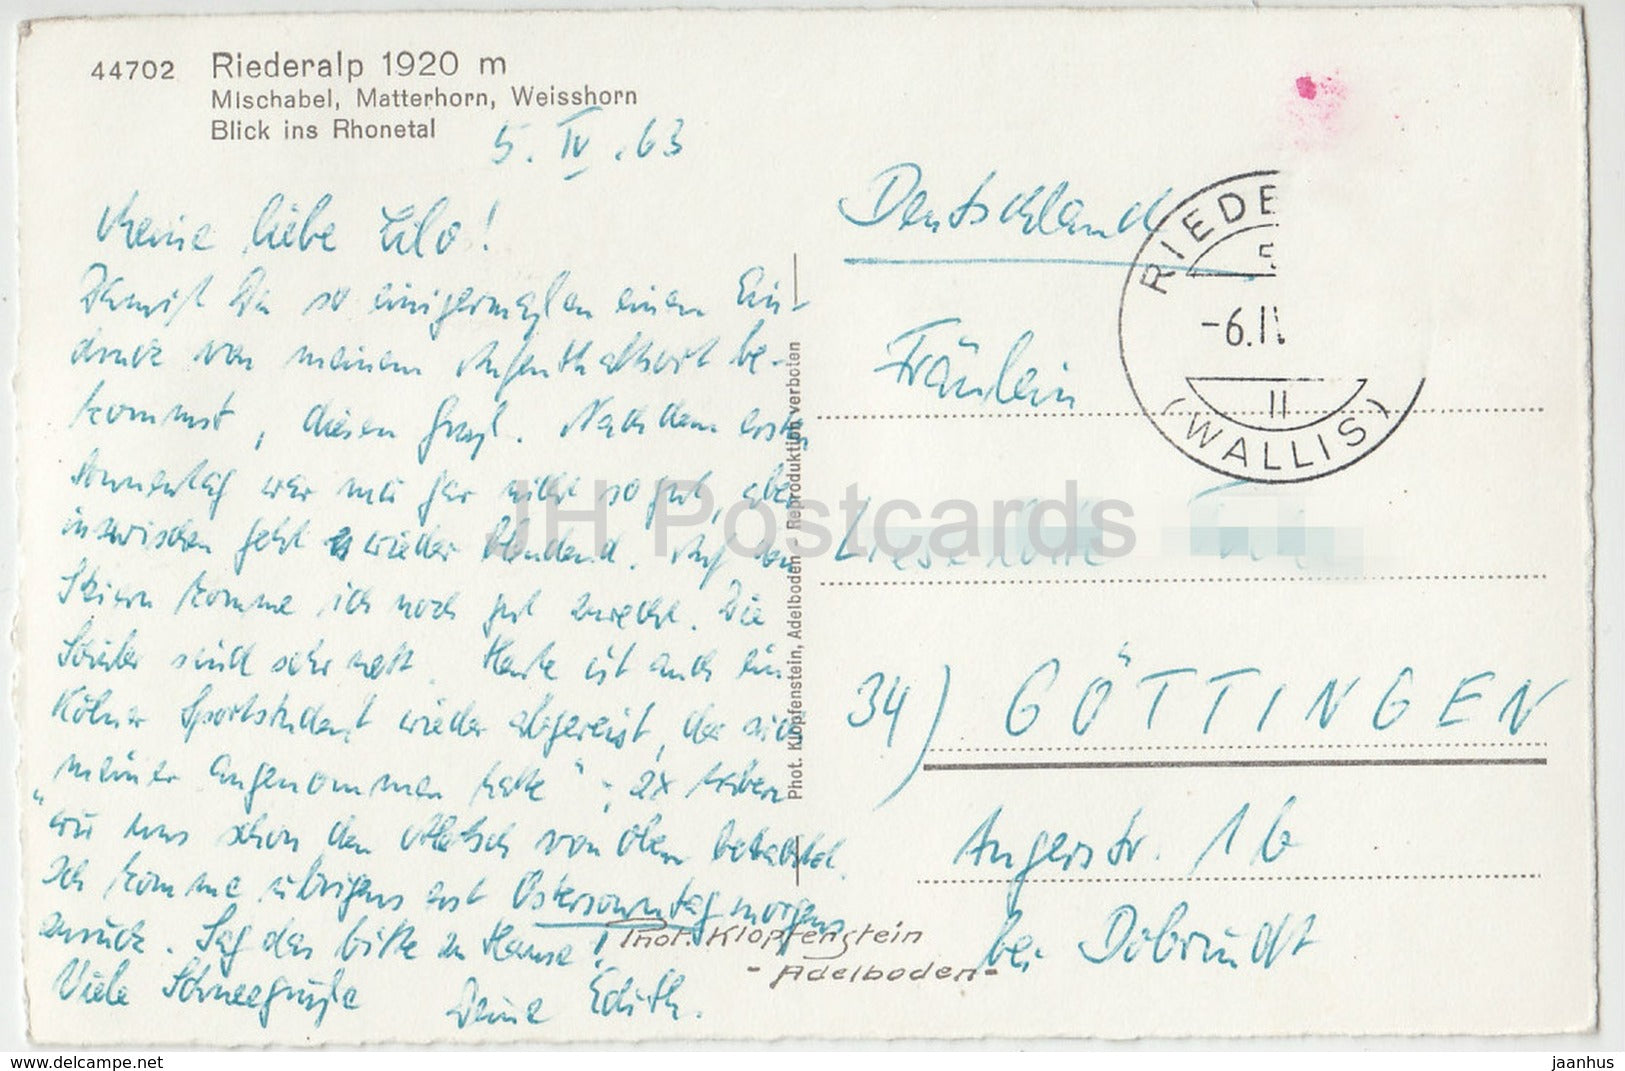 44702 Riederalp 1920 m
MIschabel, Matterhorn, Weisshorn
Blick ins Rhonetal
5. IV. 63
Meine liebe Lilo!
Damit Du so einigermaßen einen Ein-
druck von meinem Aufenthaltsort be-
kommst, diesen Gruß. Nach dem ersten
Sonnentag war mir gar nicht so gut, aber
inzwischen geht es wieder blendend. Auf den
Skiern komme ich noch gut zurecht. Die
Schüler sind sehr nett. Heute ist auch ein
Kölner Sportstudent wieder abgereist, der sich
"meiner angenommen hatte"; 2x haben
wir uns schon den Aletsch von oben betrachtet.
Ich komme übrigens erst Ostersonntag morgens
zurück. Sag das bitte zu Hause!
Viele Schneegrüße Deine Edith.
Phot. Klopfenstein, Adelboden - Reproduktion verboten
Phot. Klopfenstein
- Adelboden -
RIEDE
-6.IV
II
(WALLIS)
Deutschland
Fräulein
Lieselotte
34) GÖTTINGEN
Angerstr. 1b
bei Dobrindt
JH Postcards
delcampe.net
jaanhus